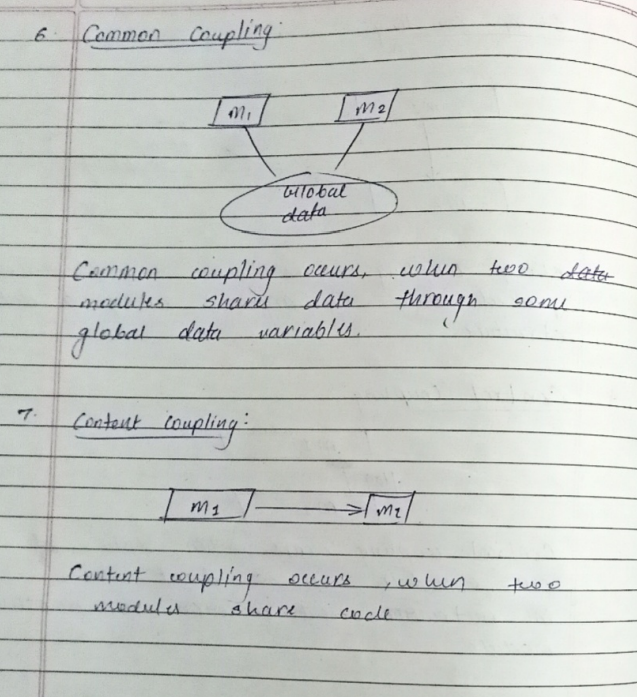 6. Common Coupling:
m1 m2
Global
data
Common coupling occurs, when two data
modules share data through some
global data variables.
7. Content Coupling:
m1 m2
Content coupling occurs, when two
modules share code